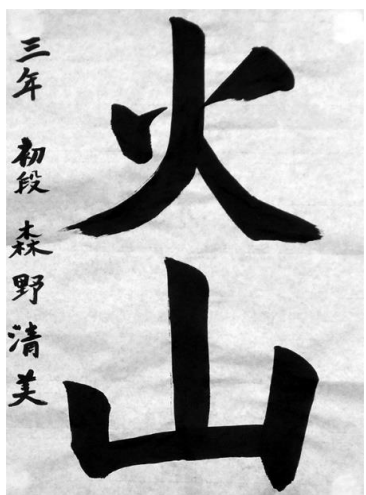 火山
三年 初段 森野清美